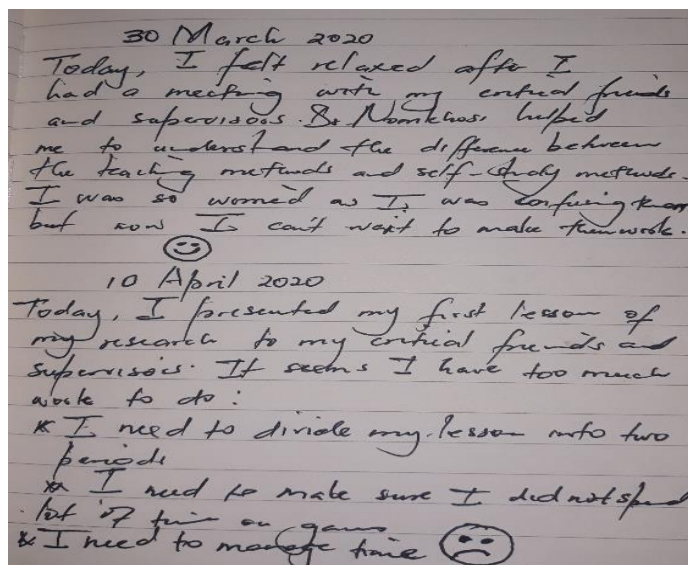 30 March 2020
Today, I felt relaxed after I
had a meeting with my critical friends
and supervisors. Nomkhosi helped
me to understand the difference between
the teaching methods and self-study methods.
I was so worried as I was confusing them
but now I can't wait to make them work.
10 April 2020
Today, I presented my first lesson of
my research to my critical friends and
supervisors. It seems I have too much
work to do:
* I need to divide my lesson into two
periods
* I need to make sure I did not spend
lot of time on games
* I need to manage time